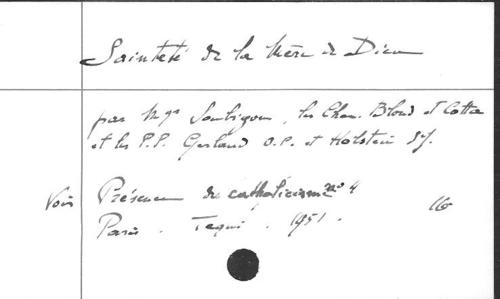 Sainteté de la Mère de Dieu
par Mgr Soubigou, les Chan. Blond et Cotta
et les P.P. Gerlaud O.P. et Holstein SJ.
Voir Présence du catholicisme no 4
Paris. Tequi. 1951. 116